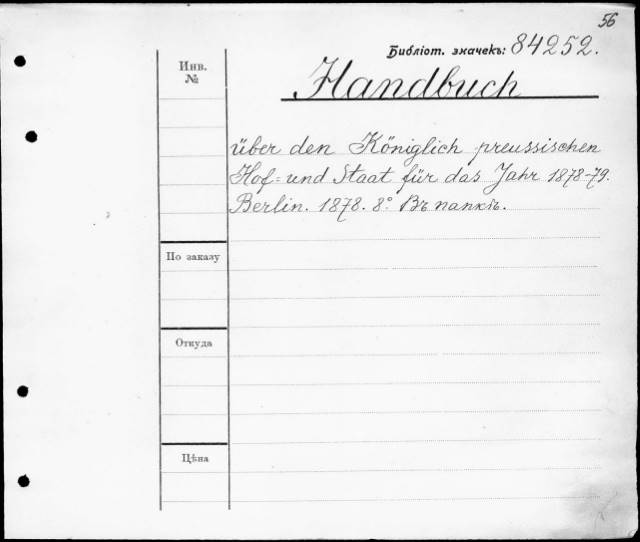 56
Библіот. значекъ: 84252.
Инв.
№
Handbuch
über den Königlich preussischen
Hof= und Staat für das Jahr 1878-79.
Berlin. 1878. 8° Въ папкѣ.
По заказу
Откуда
Цѣна